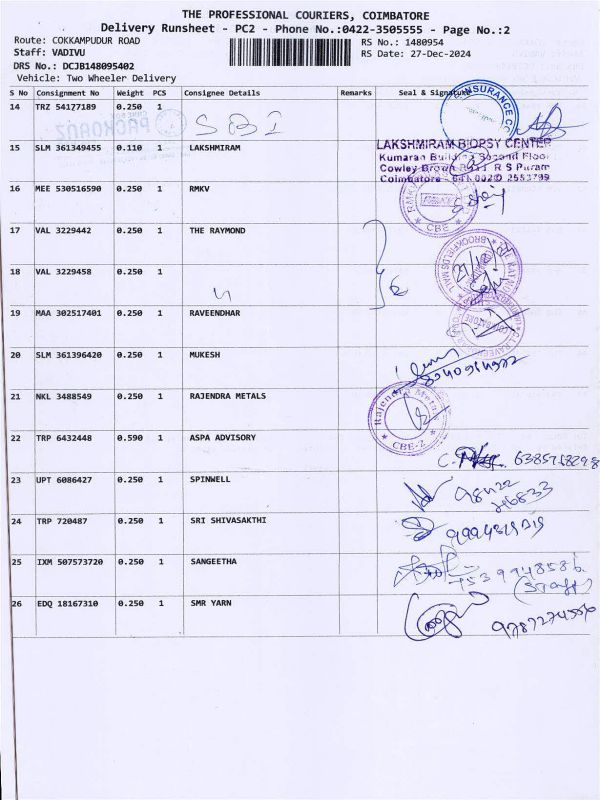 THE PROFESSIONAL COURIERS, COIMBATORE
Delivery Runsheet - PC2 - Phone No.:0422-3505555 - Page No.:2
Route: COKKAMPUDUR ROAD
RS No.: 1480954
Staff: VADIVU
RS Date: 27-Dec-2024
DRS No.: DCJB148095402
Vehicle: Two Wheeler Delivery
S No Consignment No Weight PCS Consignee Details Remarks Seal & Signature
14 TRZ 54177189 0.250 1 SBI
INSURANCE CO
15 SLM 361349455 0.110 1 LAKSHMIRAM
LAKSHMIRAM BIOPSY CENTER
Kumaran Building Second Floor
Cowley Brown Road R S Puram
Coimbatore - 641 002
16 MEE 530516590 0.250 1 RMKV
RMKV
CBE
17 VAL 3229442 0.250 1 THE RAYMOND
BROOKFIELDS MALL
18 VAL 3229458 0.250 1
19 MAA 302517401 0.250 1 RAVEENDHAR
COIMBATORE
20 SLM 361396420 0.250 1 MUKESH
21 NKL 3488549 0.250 1 RAJENDRA METALS
Rajendra Metals
CBE-2
22 TRP 6432448 0.590 1 ASPA ADVISORY
23 UPT 6086427 0.250 1 SPINWELL
24 TRP 720487 0.250 1 SRI SHIVASAKTHI
25 IXM 507573720 0.250 1 SANGEETHA
(Staff)
26 EDQ 18167310 0.250 1 SMR YARN